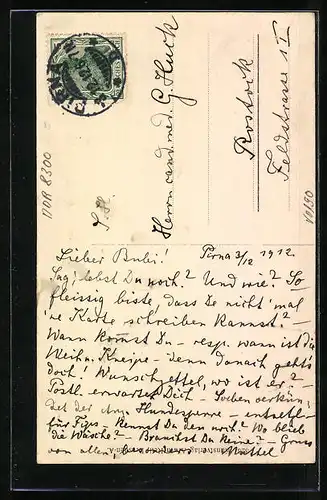 S. H.
Herrn cand. med. G. Huck
Rostock
Feldstrasse 1 I
DDR 8300
VI/90
Lieber Bubi! Pirna 3/12 1912.
Sag, lebst Du noch? Und wie? So
fleissig biste, dass De nicht 'mal
'ne Karte schreiben kannst? –
Wann kommst Du – resp. wann ist die
Weihn. Kneipe – denn danach geht's
doch! Wunschzettel, wo ist er? –
Postl. erwartet Dich – Soeben verkün-
det der Anz. Hundesperre – entsetzl.
für Fips. Kennst Du den noch? Wo bleibt
die Wäsche? – Brauchst Du keine? – Gruss
von allen,